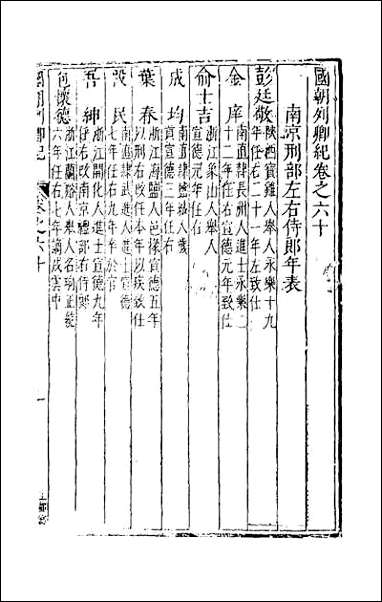 國朝列卿紀卷之六十
南京刑部左右侍郎年表
彭廷敬 陝西寶雞人舉人永樂十九
年任右二十一年左致仕
金庠 南直隸長洲人進士永樂二
十二年任右宣德元年致仕
俞士吉 浙江象山人舉人
宣德元年任左
成均 南直隸鹽城人歲
貢宣德三年任右
葉春 浙江海鹽人邑掾宣德五年
以刑右改任本年以疾致仕
段民 南直隸武進人進士宣德
七年任右九年卒於官
吾紳 浙江開化人進士宣德九年
任右改南京禮部右侍郎
何懷德 浙江蘭谿人舉人名珣正統
六年任右七年謫戍雲中
國朝列卿紀 卷之六十 一